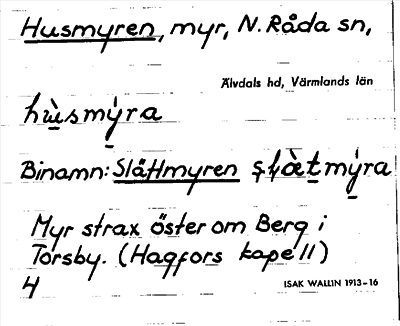 Husmyren, myr, N. Råda sn,
Älvdals hd, Värmlands län
hùsmýra
Binamn: Slåttmyren
Myr strax öster om Berg i
Torsby. (Hagfors kapell)
4
ISAK WALLIN 1913–16